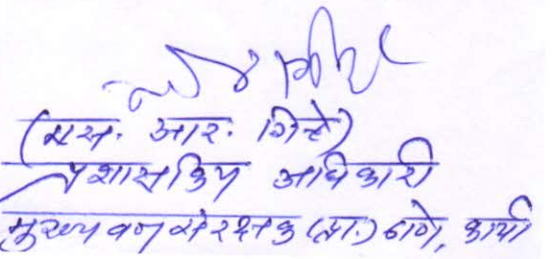 (एस. आर. शिंदे)
प्रशासकिय अधिकारी
मुख्यवनसंरक्षक (प्रा.) ठाणे, कार्या